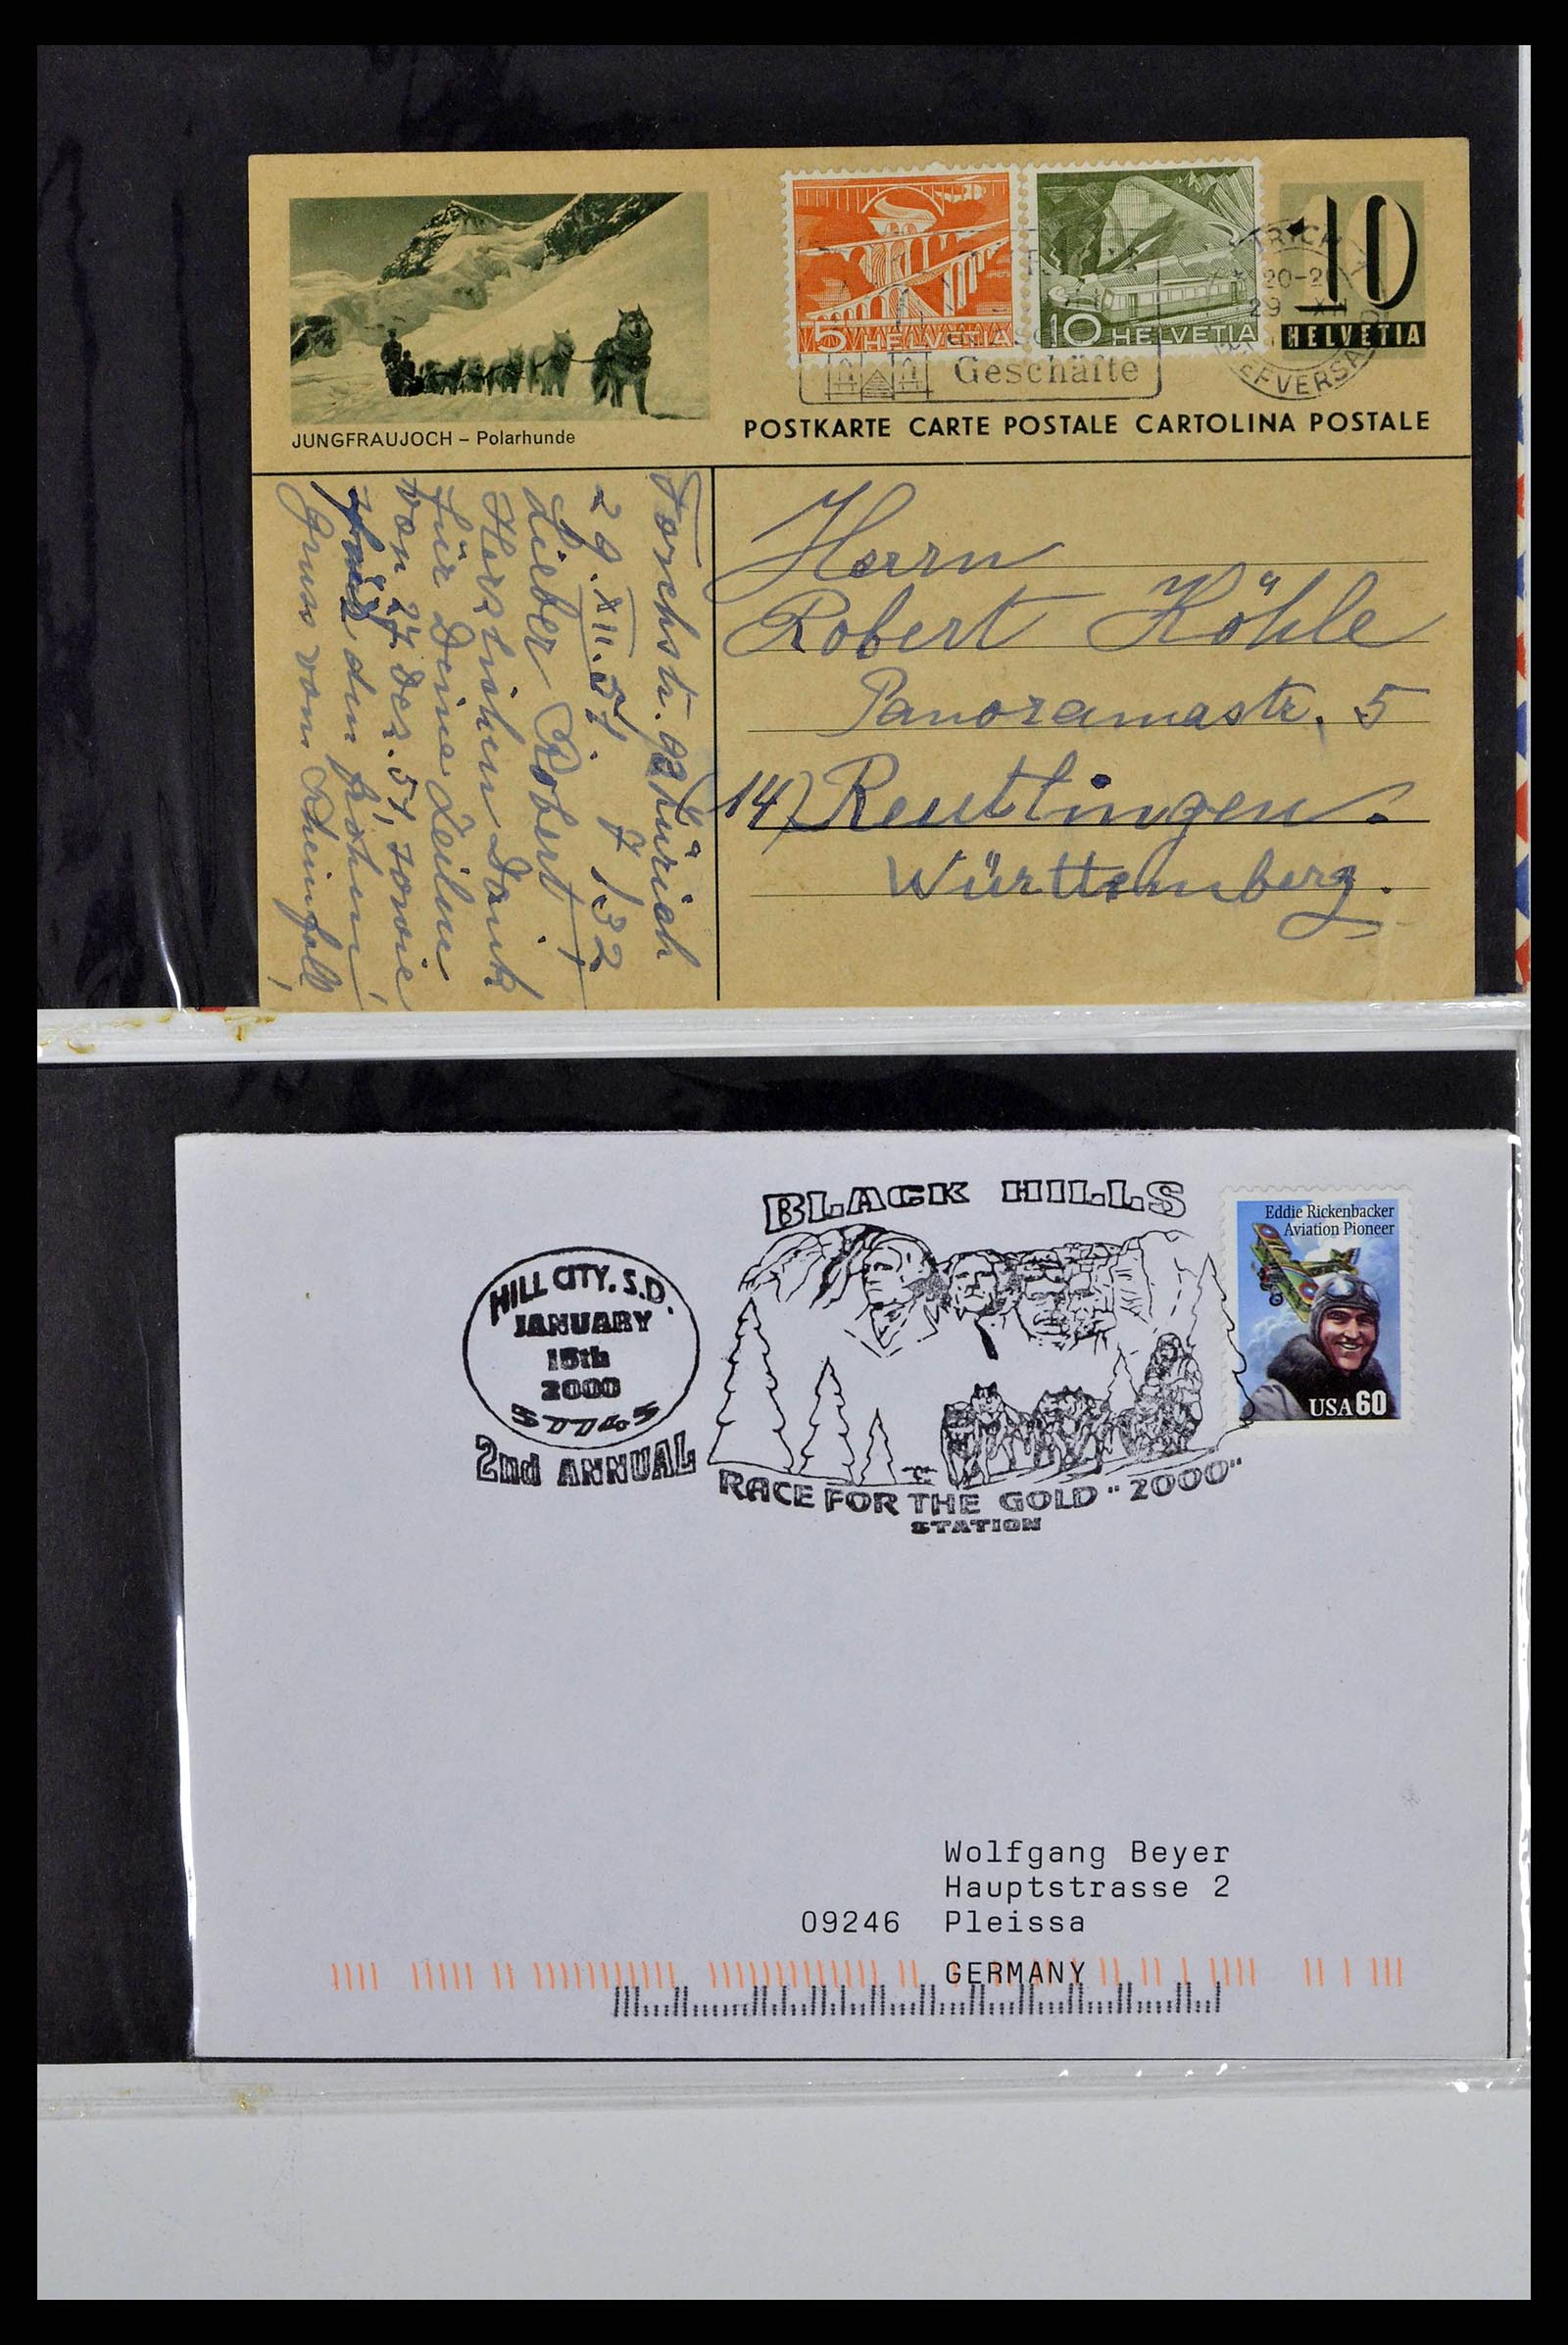 5 HELVETIA
10 HELVETIA
10
HELVETIA
20-2
29 XII
Geschäfte
JUNGFRAUJOCH – Polarhunde
POSTKARTE CARTE POSTALE CARTOLINA POSTALE
Zürich
29.XII.51.
Lieber Robert
Herzlichen Dank
für Deine Zeilen
von 24 Dez. 51, sowie
Gruss vom Rheinfall
Herrn
Robert Köhle
Panoramastr. 5
14) Reutlingen.
Württemberg.
BLACK HILLS
HILL CITY, S.D.
JANUARY
15th
2000
57745
2nd ANNUAL
RACE FOR THE GOLD "2000"
STATION
Eddie Rickenbacker
Aviation Pioneer
USA 60
Wolfgang Beyer
Hauptstrasse 2
09246 Pleissa
GERMANY